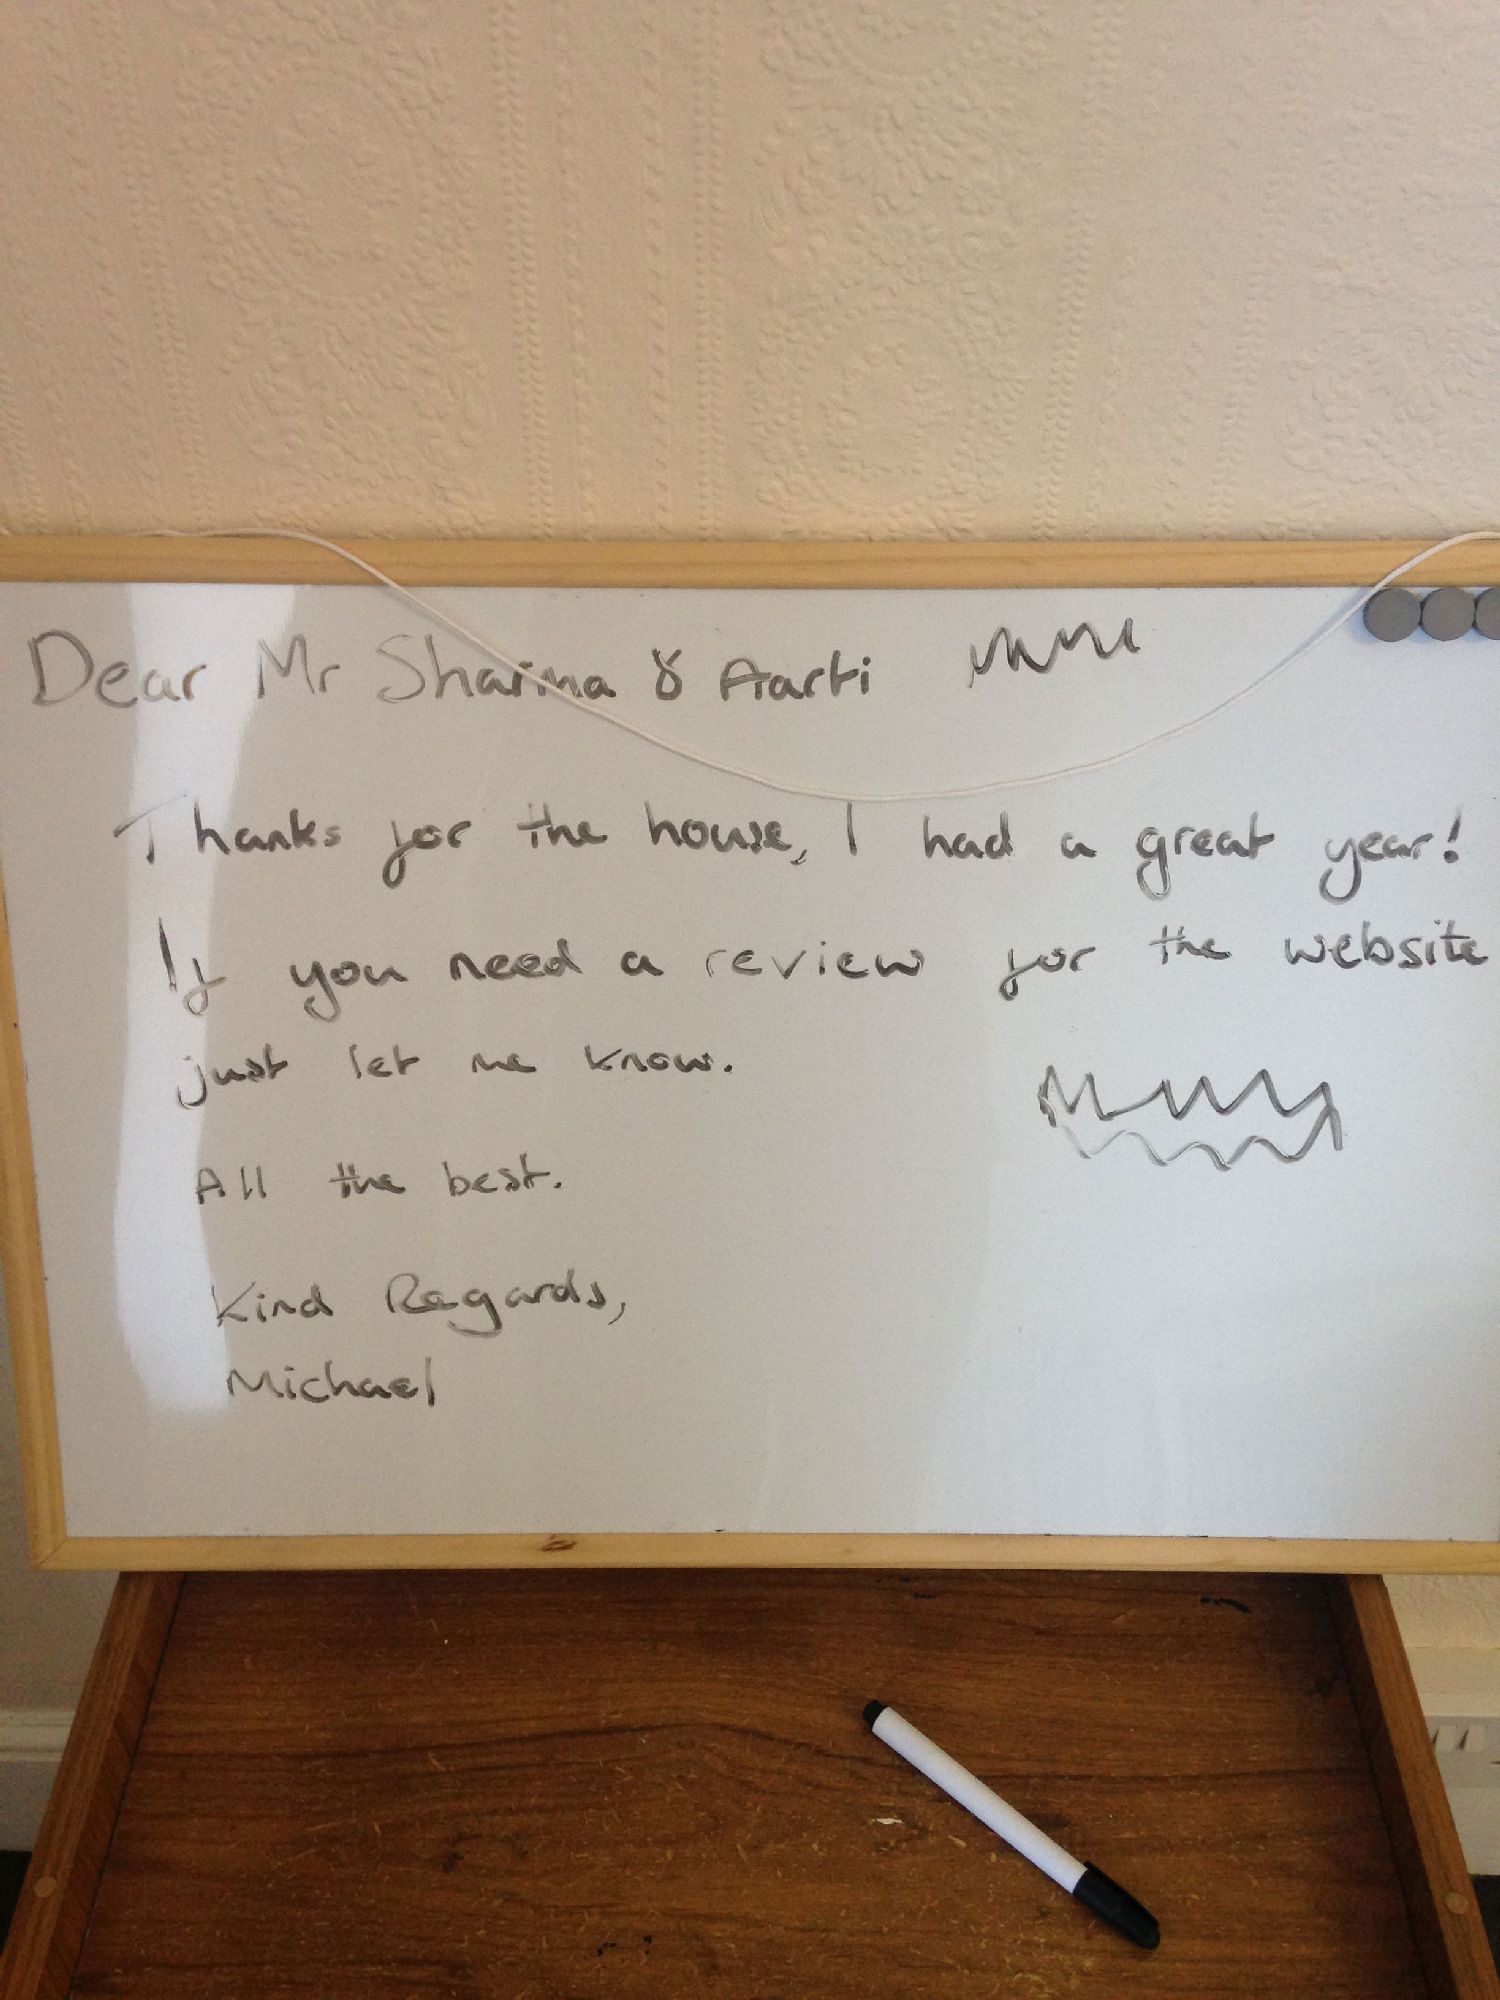 Dear Mr Sharma & Aarti
Thanks for the house, I had a great year!
If you need a review for the website
just let me know.
All the best.
Kind Regards,
Michael